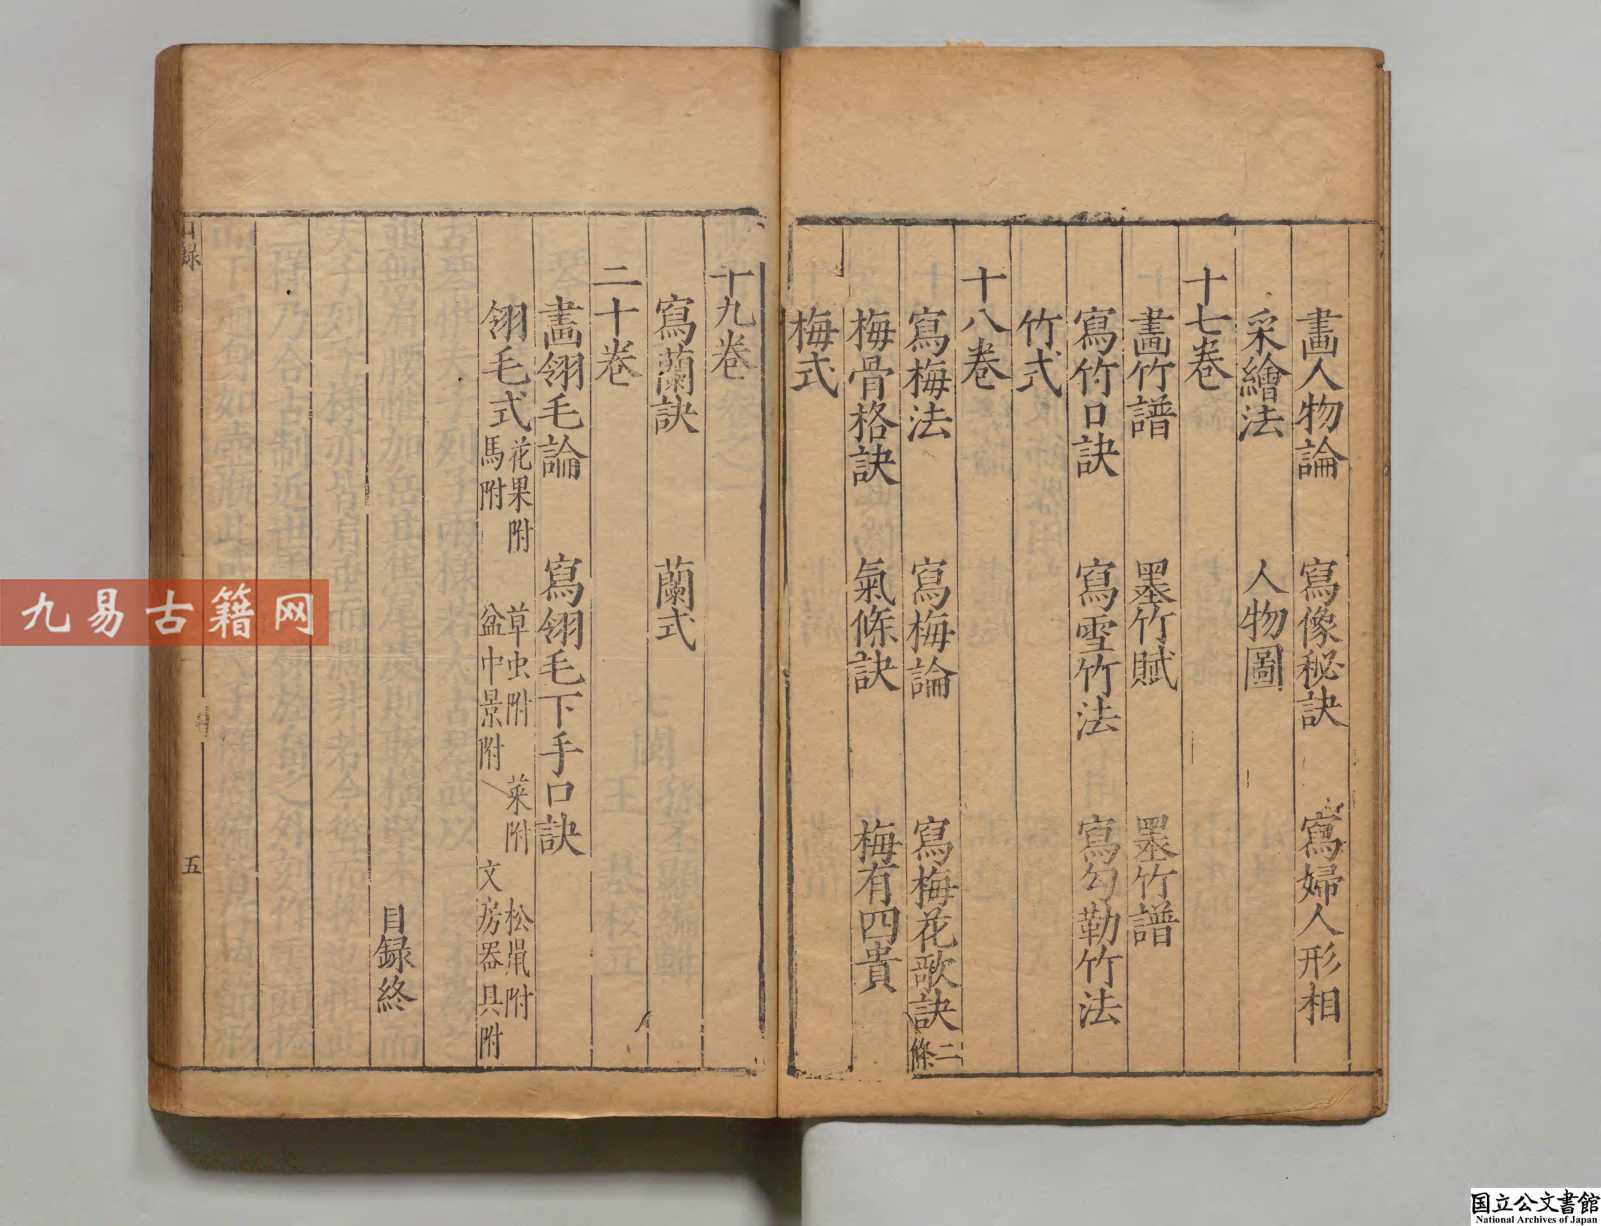 畫人物論　寫像秘訣　寫婦人形相
采繪法　人物圖
十七卷
畫竹譜　墨竹賦　墨竹譜
寫竹口訣　寫雪竹法　寫勾勒竹法
竹式
十八卷
寫梅法　寫梅論　寫梅花歌訣二條
梅骨格訣　氣條訣　梅有四貴
梅式
十九卷
寫蘭訣　蘭式
二十卷
畫翎毛論　寫翎毛下手口訣
翎毛式花果附　草虫附　菜附　松鼠附
馬附　盆中景附　文房器具附
目録終
目録　五
九易古籍网
国立公文書館
National Archives of Japan